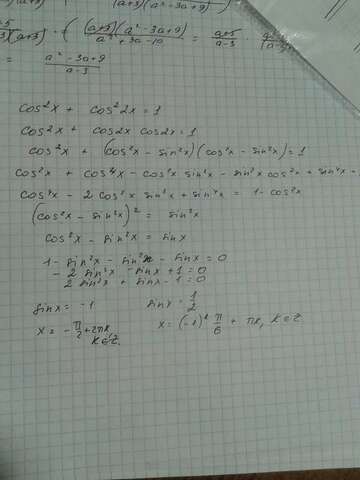 (a+5)(a²-3a+9)
a²+3a-10
= a+5
a-3
= a²-3a+9
a-3
cos²x + cos²2x = 1
cos²x + cos2x cos2x = 1
cos²x + (cos²x - sin²x)(cos²x - sin²x) = 1
cos²x + cos⁴x - cos²x sin²x - sin²x cos²x + sin⁴x =
cos⁴x - 2 cos²x sin²x + sin⁴x = 1 - cos²x
(cos²x - sin²x)² = sin²x
cos²x - sin²x = sinx
1 - sin²x - sin²x - sinx = 0
- 2 sin²x - sinx + 1 = 0
2 sin²x + sinx - 1 = 0
sinx = -1 sinx = 1/2
x = - π/2 + 2πk x = (-1)ᵏ π/6 + πk, k∈Z.
k∈Z.